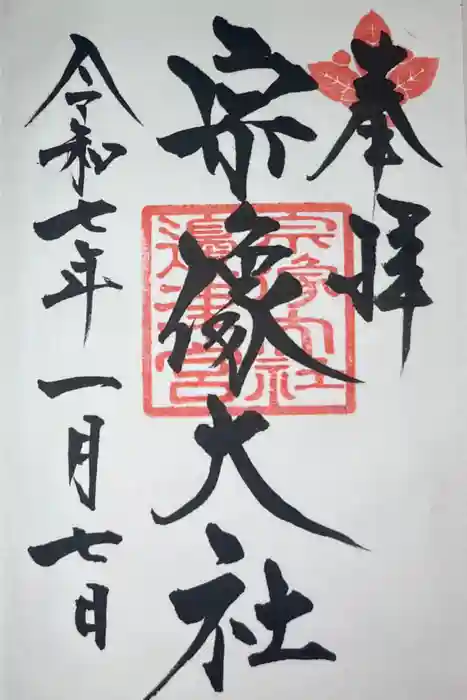 奉拝
宗像大社
宗像大社
邉津宮
令和七年一月七日